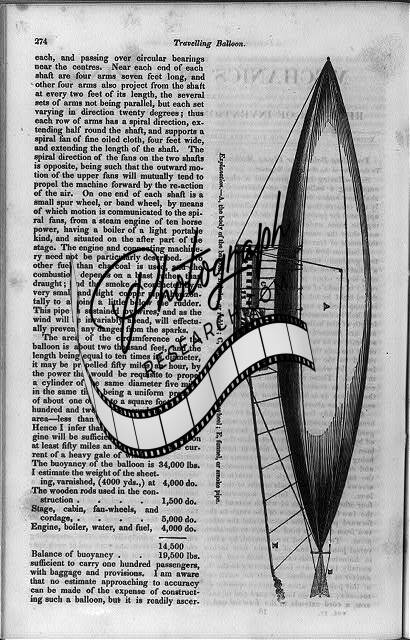 274
Travelling Balloon.
each, and passing over circular bearings
near the centres. Near each end of each
shaft are four arms seven feet long, and
other four arms also project from the shaft
at every two feet of its length, the several
sets of arms not being parallel, but each set
varying in direction twenty degrees; thus
each row of arms has a spiral direction, ex-
tending half round the shaft, and supports a
spiral fan of fine oiled cloth, four feet wide,
and extending the length of the shaft. The
spiral direction of the fans on the two shafts
is opposite, being such that the outward mo-
tion of the upper fans will mutually tend to
propel the machine forward by the re-action
of the air. On one end of each shaft is a
small spur wheel, or band wheel, by means
of which motion is communicated to the spi-
ral fans, from a steam engine of ten horse
power, having a boiler of a light portable
kind, and situated on the after part of the
stage. The engine and connecting machine-
ry need not be particularly described.
other fuel charcoal is used
combustion depends on a blast than
draught; the smoke is con
very small light copper horizon-
tally to a little below the rudder.
This pipe sustained wires, and as the
wind will invariably head, will effectu-
ally prevent any danger from the sparks.
The area of the circumference of the
balloon is about two thousand feet, and the
length being equal to ten times its diameter,
it may be propelled fifty miles per hour, by
the power that would be requisite to propel
a cylinder of the same diameter five miles
in the same time being a uniform
of about one to a square foot
hundred and twe
area—less than
Hence I infer that
gine will be sufficient
at least fifty miles an cur-
rent of a heavy gale of
The buoyancy of the balloon is 34,000 lbs.
I estimate the weight of the sheet-
ing, varnished, (4000 yds.,) at 4,000 do.
The wooden rods used in the con-
struction . . . . 1,500 do.
Stage, cabin, fan-wheels, and
cordage, . . . . 5,000 do.
Engine, boiler, water, and fuel, 4,000 do.
14,500
Balance of buoyancy . . 19,500 lbs.
sufficient to carry one hundred passengers,
with baggage and provisions. I am aware
that no estimate approaching to accuracy
can be made of the expense of construct-
ing such a balloon, but it is readily ascer.
Explanation.—A, the body of the
wheel; E, funnel, or smoke pipe.
A
E
B
Photograph
RESEARCHERS